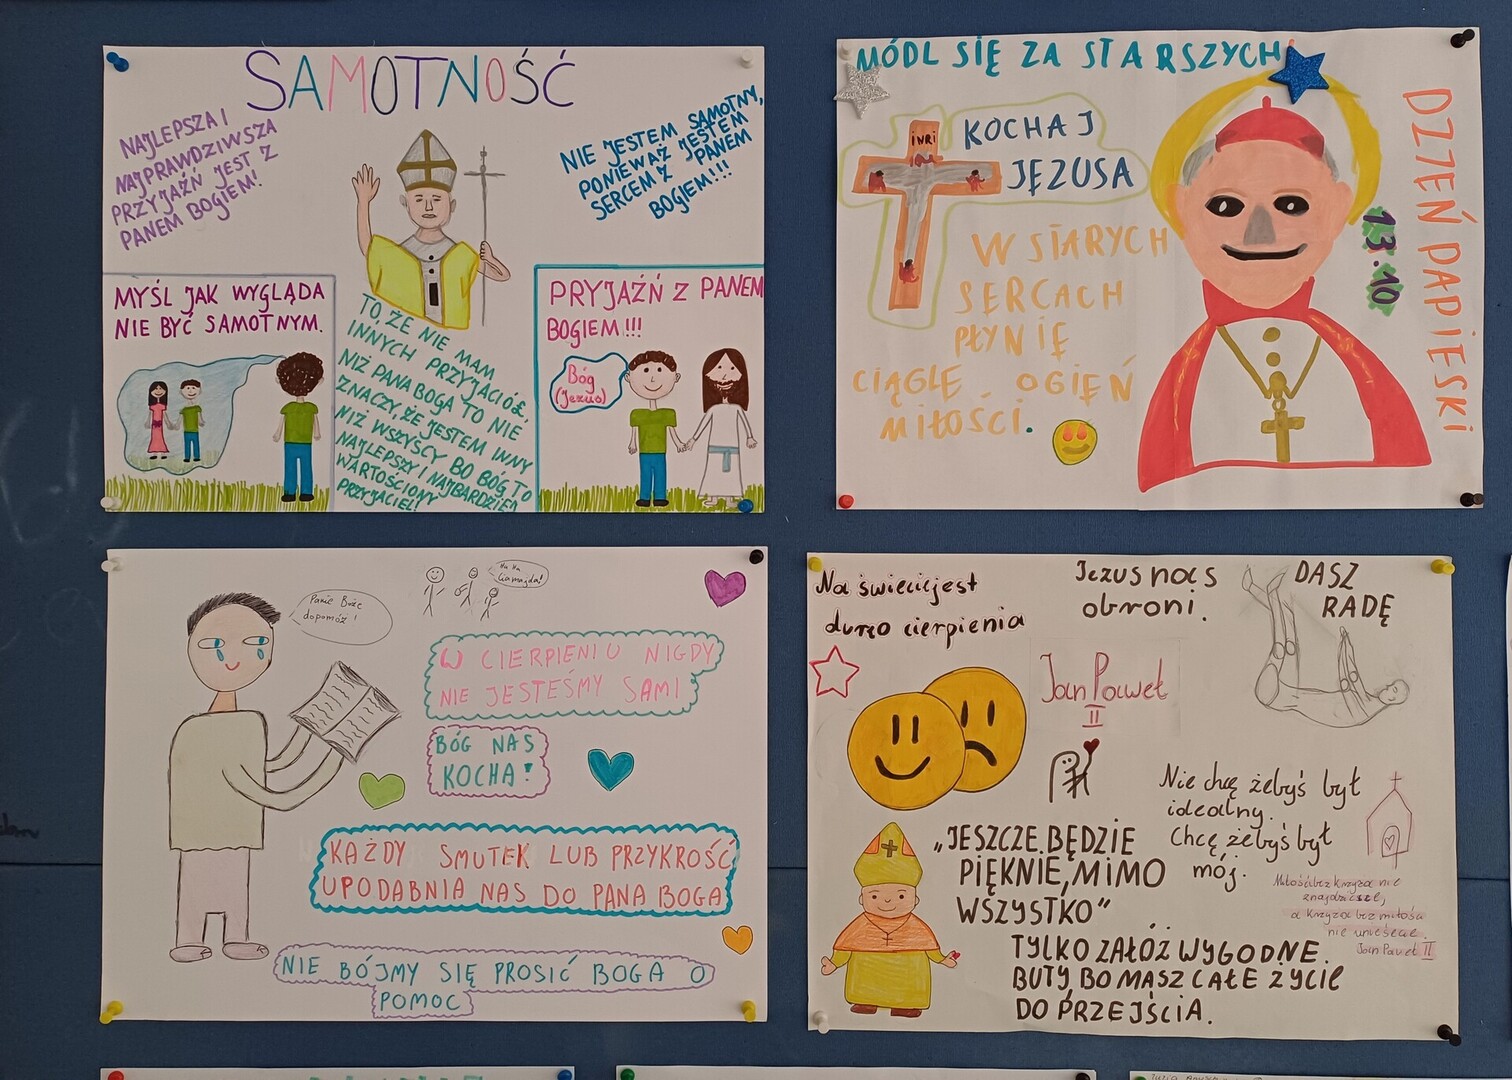 SAMOTNOŚĆ
NAJLEPSZA I
NAJPRAWDZIWSZA
PRZYJAŹŃ JEST Z
PANEM BOGIEM!
NIE JESTEM SAMOTNY,
PONIEWAŻ JESTEM
SERCEM Z PANEM
BOGIEM!!!
MYŚL JAK WYGLĄDA
NIE BYĆ SAMOTNYM.
TO ŻE NIE MAM
INNYCH PRZYJACIÓŁ,
NIŻ PANA BOGA TO NIE
ZNACZY, ŻE JESTEM INNY
NIŻ WSZYSCY BO BÓG TO
NAJLEPSZY I NAJBARDZIEJ
WARTOŚCIONY
PRZYJACIEL!
PRYJAŹŃ Z PANEM
BOGIEM!!!
Bóg
(Jezus)
MÓDL SIĘ ZA STARSZYCH!
INRI
KOCHAJ
JĘZUSA
W STARYCH
SERCACH
PŁYNIĘ
CIĄGLĘ OGIĘŃ
MIŁOŚCI.
DZIEŃ PAPIESKI
13.10
Panie Boże
dopomóż!
Ha Ha
W CIERPIENIU NIGDY
NIE JESTEŚMY SAMI
BÓG NAS
KOCHA!
KAŻDY SMUTEK LUB PRZYKROŚĆ
UPODABNIA NAS DO PANA BOGA
NIE BÓJMY SIĘ PROSIĆ BOGA O
POMOC
Na świecie jest
dużo cierpienia
Jezus nas
obroni.
DASZ
RADĘ
Jan Paweł
II
"JESZCZE BĘDZIE
PIĘKNIE, MIMO
WSZYSTKO"
Nie chcę żebyś był
idealny.
Chcę żebyś był
mój.
Miłości bez krzyża nie
znajdziecie,
a krzyża bez miłości
nie uniesiecie.
Jan Paweł II
TYLKO ZAŁÓŻ WYGODNE
BUTY, BO MASZ CAŁE ŻYCIE
DO PRZEJŚCIA.